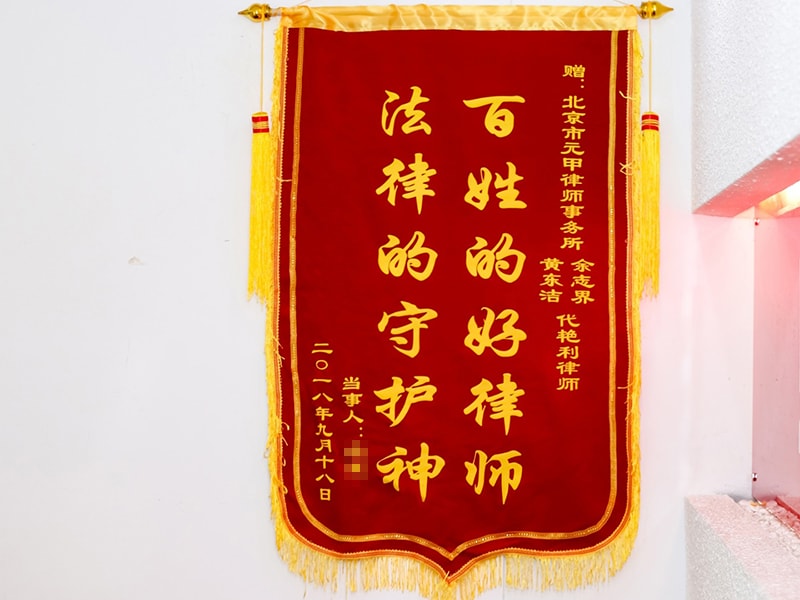 赠：北京市元甲律师事务所
余志界
黄东洁
代艳利律师
百姓的好律师
法律的守护神
当事人：
二〇一八年九月十八日